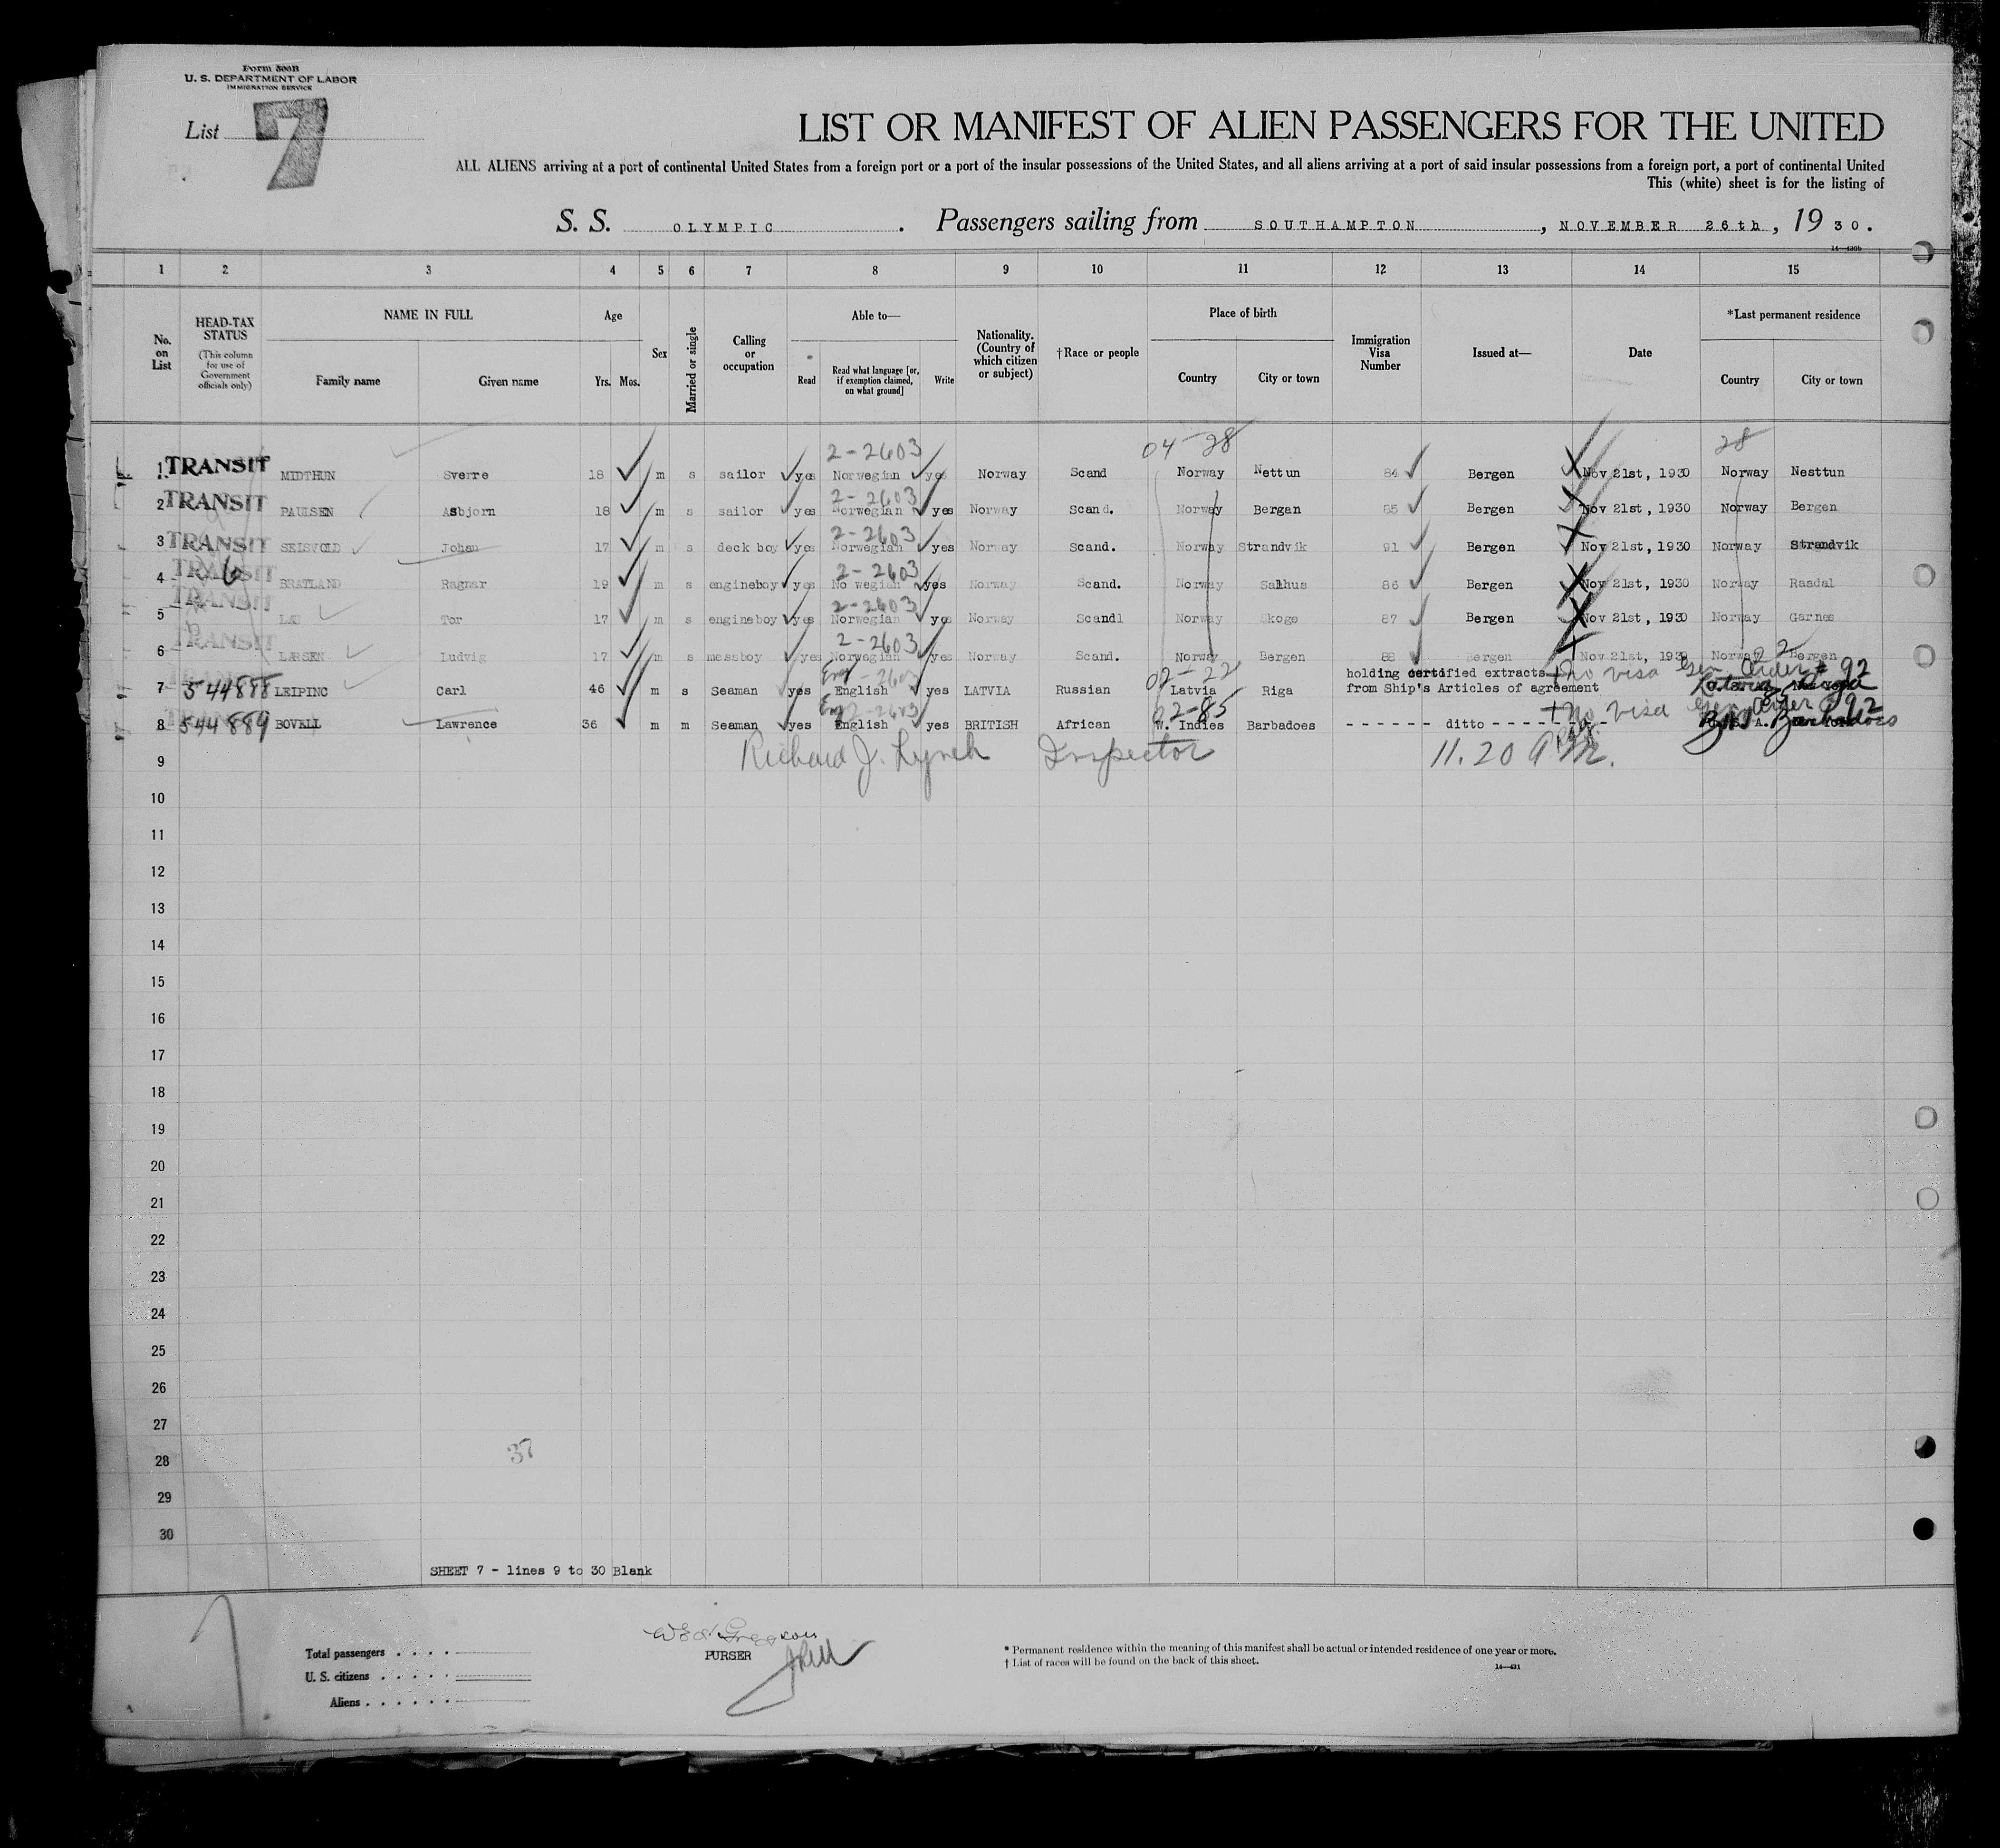 Form 500B
U. S. DEPARTMENT OF LABOR
IMMIGRATION SERVICE
List 7
LIST OR MANIFEST OF ALIEN PASSENGERS FOR THE UNITED
ALL ALIENS arriving at a port of continental United States from a foreign port or a port of the insular possessions of the United States, and all aliens arriving at a port of said insular possessions from a foreign port, a port of continental United
This (white) sheet is for the listing of
S. S. OLYMPIC . Passengers sailing from SOUTHAMPTON , NOVEMBER 26th , 19 30.
1 2 3 4 5 6 7 8 9 10 11 12 13 14 15
No. on List
HEAD-TAX STATUS (This column for use of Government officials only)
NAME IN FULL Family name Given name
Age Yrs. Mos.
Sex
Married or single
Calling or occupation
Able to— Read Read what language [or, if exemption claimed, on what ground] Write
Nationality. (Country of which citizen or subject)
†Race or people
Place of birth Country City or town
Immigration Visa Number
Issued at—
Date
*Last permanent residence Country City or town
2-2603 04-28 28
1 TRANSIT MIDTHUN Sverre 18 m s sailor yes Norwegian yes Norway Scand Norway Nettun 84 Bergen Nov 21st, 1930 Norway Nesttun
2-2603
2 TRANSIT PAULSEN Asbjorn 18 m s sailor yes Norwegian yes Norway Scand. Norway Bergen 85 Bergen Nov 21st, 1930 Norway Bergen
2-2603
3 TRANSIT SEISVOLD Johan 17 m s deck boy yes Norwegian yes Norway Scand. Norway Strandvik 91 Bergen Nov 21st, 1930 Norway Strandvik
2-2603
4 TRANSIT BRATLAND Ragnar 19 m s engineboy yes No wegian yes Norway Scand. Norway Salhus 86 Bergen Nov 21st, 1930 Norway Raadal
2-2603
5 TRANSIT Tor 17 m s engineboy yes Norwegian yes Norway Scandl Norway Skoge 87 Bergen Nov 21st, 1930 Norway Garnes
2-2603
6 TRANSIT LARSEN Ludvig 17 m s messboy yes Norwegian yes Norway Scand. Norway Bergen 88 Bergen Nov 21st, 1930 Norway Bergen
Eng 2-2603 02-22 holding certified extracts No visa Gen Order # 92
7 544888 LEIPINC Carl 46 m s Seaman yes English yes LATVIA Russian Latvia Riga from Ship's Articles of agreement Latvia Riga
Eng 2-2603 02-85 No visa Gen Order 92
8 544889 BOVELL Lawrence 36 m m Seaman yes English yes BRITISH African W. Indies Barbadoes - - - - - - ditto - - - - - - Barbadoes
9 Richard J. Lynch Inspector 11.20 AM.
10
11
12
13
14
15
16
17
18
19
20
21
22
23
24
25
26
27
37
28
29
30
SHEET 7 - lines 9 to 30 Blank
Total passengers . . . .
U. S. citizens . . . . .
Aliens . . . . . .
PURSER
* Permanent residence within the meaning of this manifest shall be actual or intended residence of one year or more.
† List of races will be found on the back of this sheet.